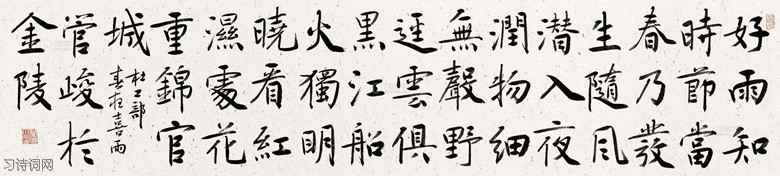 好雨知
時節當
春乃發
生隨風
潛入夜
潤物細
無聲野
逕雲俱
黑江船
火獨明
曉看紅
濕處花
重錦官
城
杜工部
春夜喜雨
管峻於
金陵
习诗词网